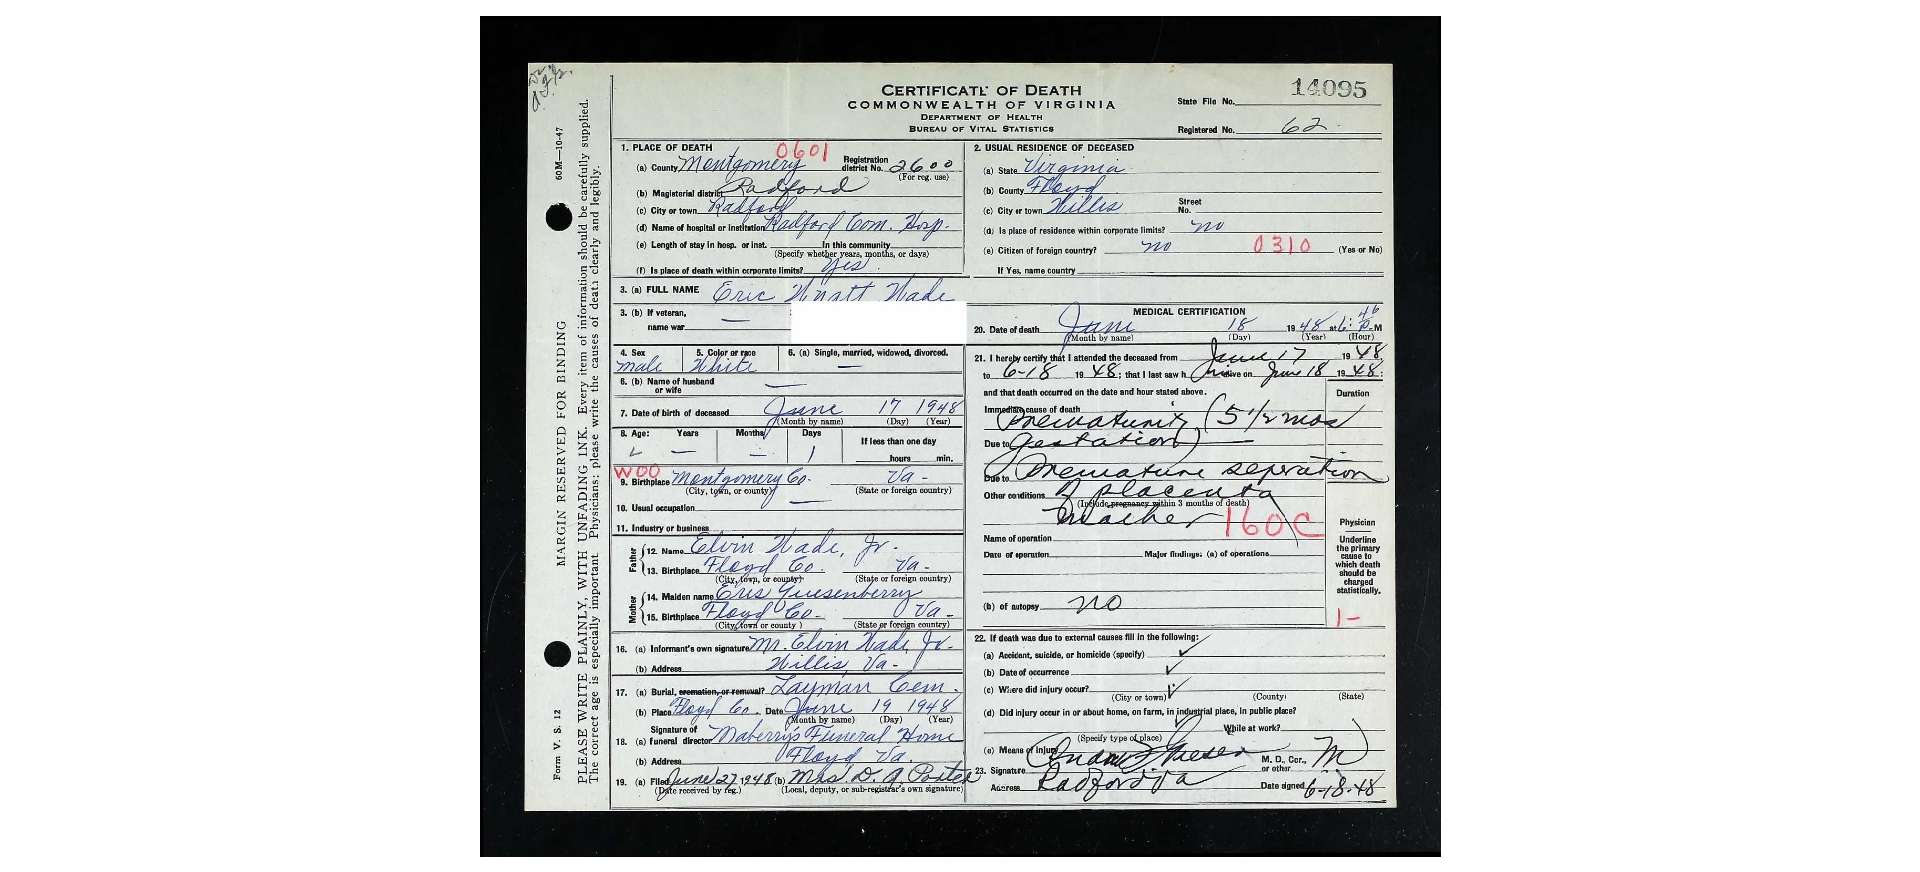 14095
CERTIFICATE OF DEATH
COMMONWEALTH OF VIRGINIA
DEPARTMENT OF HEALTH
BUREAU OF VITAL STATISTICS
State File No.
Registered No. 62
60M—10-47
MARGIN RESERVED FOR BINDING
Form V. S. 12
PLEASE WRITE PLAINLY, WITH UNFADING INK. Every item of information should be carefully supplied.
The correct age is especially important Physicians: please write the causes of death clearly and legibly.
1. PLACE OF DEATH 0601
(a) County Montgomery Registration district No. 2600
(For reg. use)
(b) Magisterial district Radford
(c) City or town Radford
(d) Name of hospital or institution Radford Com. Hosp.
(e) Length of stay in hosp. or inst. In this community
(Specify whether years, months, or days)
(f) Is place of death within corporate limits? Yes
2. USUAL RESIDENCE OF DECEASED
(a) State Virginia
(b) County Floyd
(c) City or town Willis Street No.
(d) Is place of residence within corporate limits? no
(e) Citizen of foreign country? no 0310 (Yes or No)
If Yes, name country
3. (a) FULL NAME Eric Wyatt Wade
3. (b) If veteran, name war —
4. Sex male
5. Color or race White
6. (a) Single, married, widowed, divorced. —
6. (b) Name of husband or wife —
7. Date of birth of deceased June 17 1948
(Month by name) (Day) (Year)
8. Age: Years — Months — Days 1 If less than one day
hours min.
W00
9. Birthplace Montgomery Co. Va -
(City, town, or county) (State or foreign country)
10. Usual occupation —
11. Industry or business
Father
12. Name Elvin Wade, Jr.
13. Birthplace Floyd Co. Va -
(City, town, or county) (State or foreign country)
Mother
14. Maiden name Eris Quesenberry
15. Birthplace Floyd Co- Va -
(City, town or county) (State or foreign country)
16. (a) Informant's own signature Mr. Elvin Wade, Jr.
(b) Address Willis, Va -
17. (a) Burial, cremation, or removal? Layman Cem.
(b) Place Floyd Co. Date June 19 1948
(Month by name) (Day) (Year)
18. (a) Signature of funeral director Maberry's Funeral Home
(b) Address Floyd Va.
19. (a) Filed June 27, 1948 (b) Mrs. D. A. Porter
(Date received by reg.) (Local, deputy, or sub-registrar's own signature)
MEDICAL CERTIFICATION
20. Date of death June 18 1948 at 6:46 P.M
(Month by name) (Day) (Year) (Hour)
21. I hereby certify that I attended the deceased from June 17 1948
to 6-18 1948; that I last saw him alive on June 18 1948;
and that death occurred on the date and hour stated above.
Duration
Immediate cause of death
Prematurity (5 1/2 mos
Due to gestation)
Due to Premature seperation
Other conditions of placenta
(Include pregnancy within 3 months of death)
Mother 160C
Name of operation
Date of operation Major findings: (a) of operations
(b) of autopsy no
Physician
Underline the primary cause to which death should be charged statistically.
1-
22. If death was due to external causes fill in the following:
(a) Accident, suicide, or homicide (specify)
(b) Date of occurrence
(c) Where did injury occur?
(City or town) (County) (State)
(d) Did injury occur in or about home, on farm, in industrial place, in public place?
While at work?
(Specify type of place)
(e) Means of injury
23. Signature M. D., Cor., or other M
Address Radford Va Date signed 6-18-48